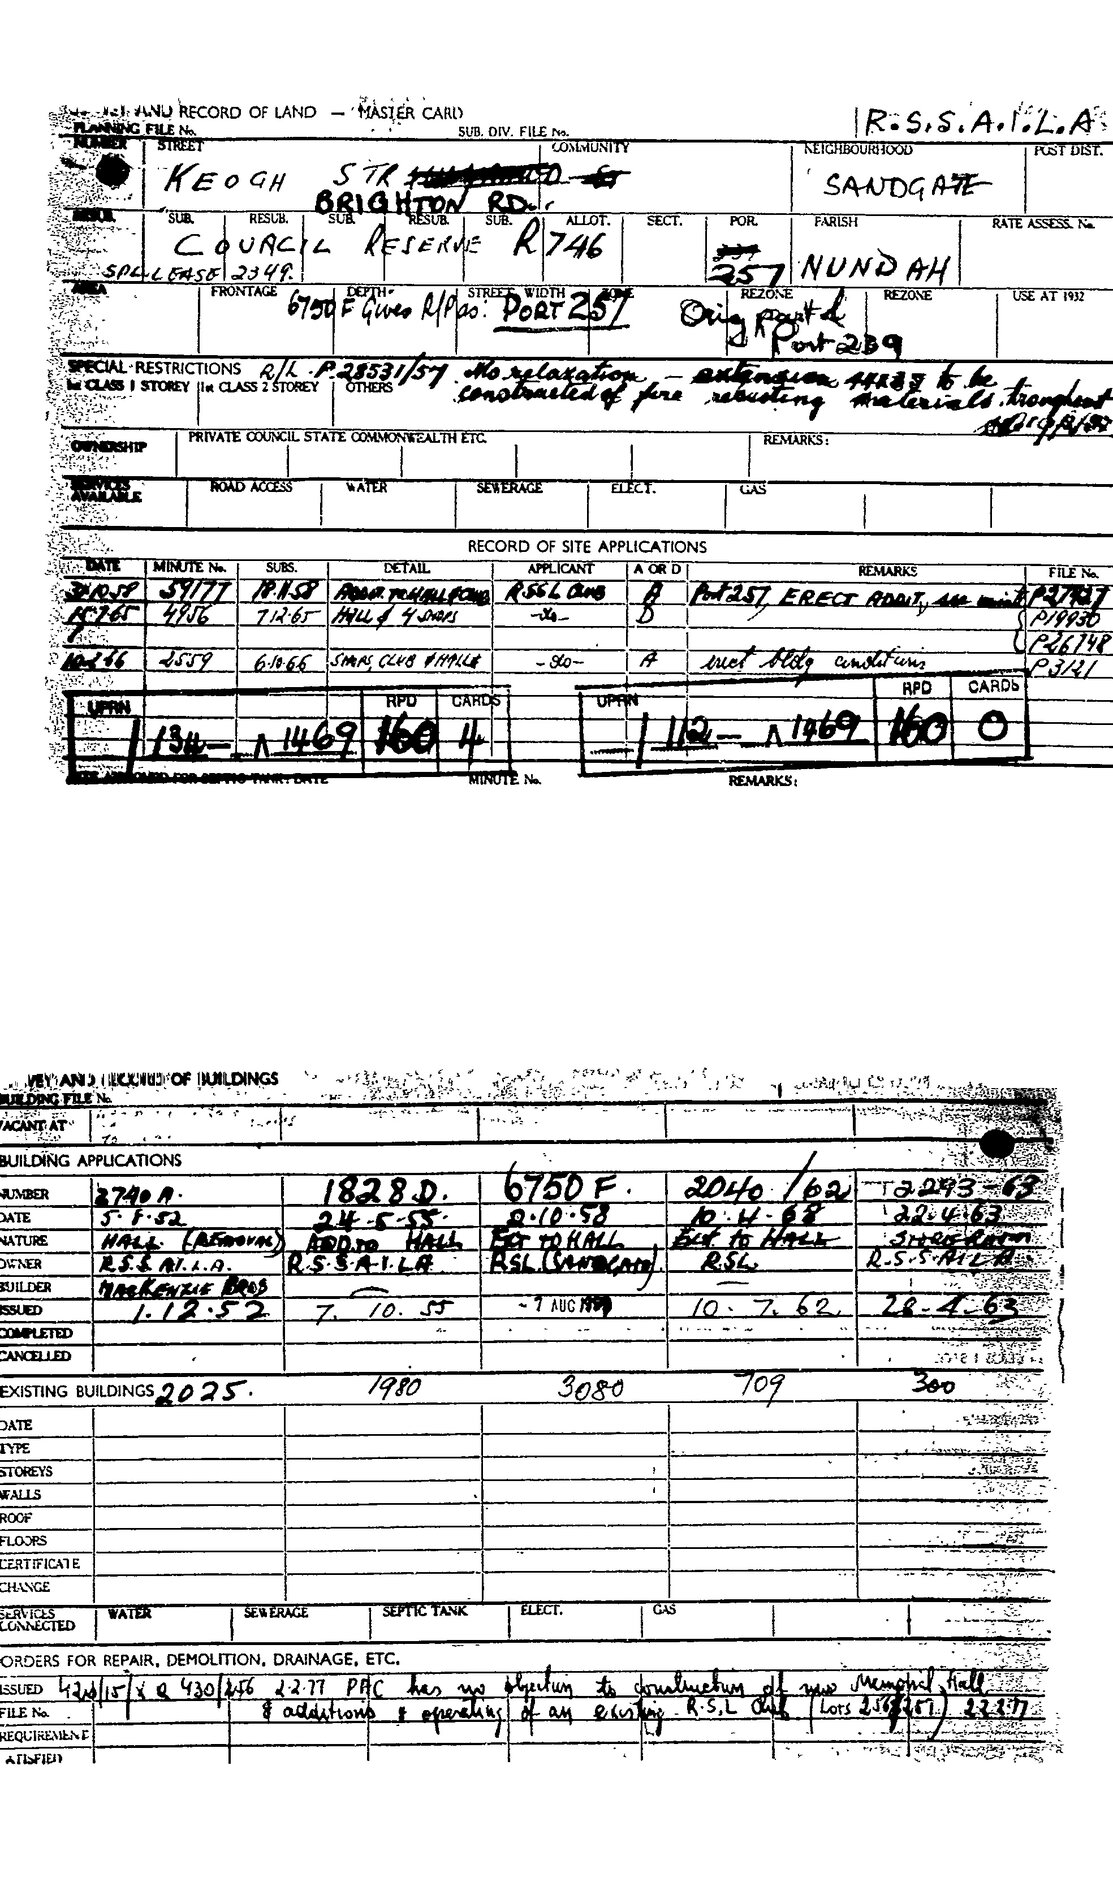 AND RECORD OF LAND — MASTER CARD
R.S.S.A.I.L.A
PLANNING FILE No. SUB. DIV. FILE No.
NUMBER STREET COMMUNITY NEIGHBOURHOOD POST DIST.
KEOGH STR SANDGATE
BRIGHTON RD.
SUB. RESUB. SUB. RESUB. SUB. ALLOT. SECT. POR. PARISH RATE ASSESS. No.
COUNCIL RESERVE R746 257 NUNDAH
SPL LEASE 2349.
AREA FRONTAGE DEPTH STREET WIDTH ZONE REZONE REZONE USE AT 1932
6750 F Gives R/P as: PORT 257 Orig part of
Port 239
SPECIAL RESTRICTIONS R/L. P.28531/57 No relaxation — extension to be
1st CLASS 1 STOREY 1st CLASS 2 STOREY OTHERS constructed of fire resisting materials throughout
OWNERSHIP PRIVATE COUNCIL STATE COMMONWEALTH ETC. REMARKS:
SERVICES AVAILABLE ROAD ACCESS WATER SEWERAGE ELECT. GAS
RECORD OF SITE APPLICATIONS
DATE MINUTE No. SUBS. DETAIL APPLICANT A OR D REMARKS FILE No.
59177 18.11.58 ADDIT. TO HALL & CLUB RSSL CLUB A Port 257, ERECT ADDIT, see minute P27427
15-7-65 4956 7.12.65 HALL & 4 SHOPS -do- D P19930
P26748
10-2-66 2559 6.10.66 SHOPS, CLUB & HALL -do- A erect bldg conditions P3121
UPRN RPD CARDS UPRN RPD CARDS
134 — 1469 160 4 112 — 1469 160 0
SITE APPROVED FOR SEPTIC TANK: DATE MINUTE No. REMARKS:
SURVEY AND RECORD OF BUILDINGS
BUILDING FILE No.
VACANT AT
BUILDING APPLICATIONS
NUMBER 2740 A. 1828 D. 6750 F. 2040/62 2293-63
DATE 5.8.52 24-5-55 2.10.58 10.4.68 22.4.63
NATURE HALL (REMOVAL) ADD. TO HALL EXT TO HALL EXT TO HALL STOREROOM
OWNER R.S.S.A.I.L.A. R.S.S.A.I.L.A RSL (SANDGATE) RSL. R.S.S.A.I.L.A
BUILDER MACKENZIE BROS
ISSUED 1.12.52 7. 10. 55 - 7 AUG 10. 7. 62 28-4-63
COMPLETED
CANCELLED
EXISTING BUILDINGS 2025. 1980 3080 709 300
DATE
TYPE
STOREYS
WALLS
ROOF
FLOORS
CERTIFICATE
CHANGE
SERVICES CONNECTED WATER SEWERAGE SEPTIC TANK ELECT. GAS
ORDERS FOR REPAIR, DEMOLITION, DRAINAGE, ETC.
ISSUED 430/256 2.2.77 PAC has no objection to construction of new Memorial Hall
FILE No. & additions & operating of an existing R.S.L Club (Lots 256/257) 2.2.77
REQUIREMENT
SATISFIED